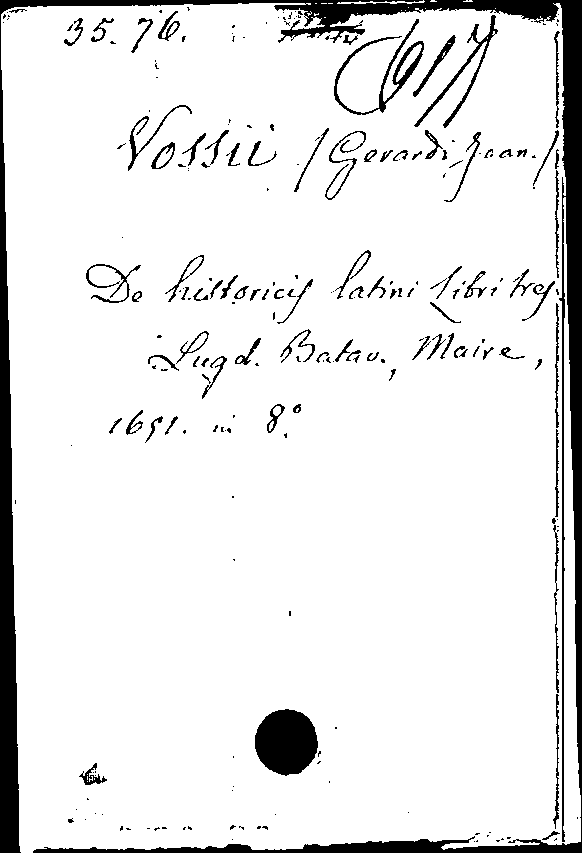 35. 76.
617
Vossii (Gerardi Joan.)
De historicis latini libri tres.
Lugd. Batav., Maire,
1651. in 8.°